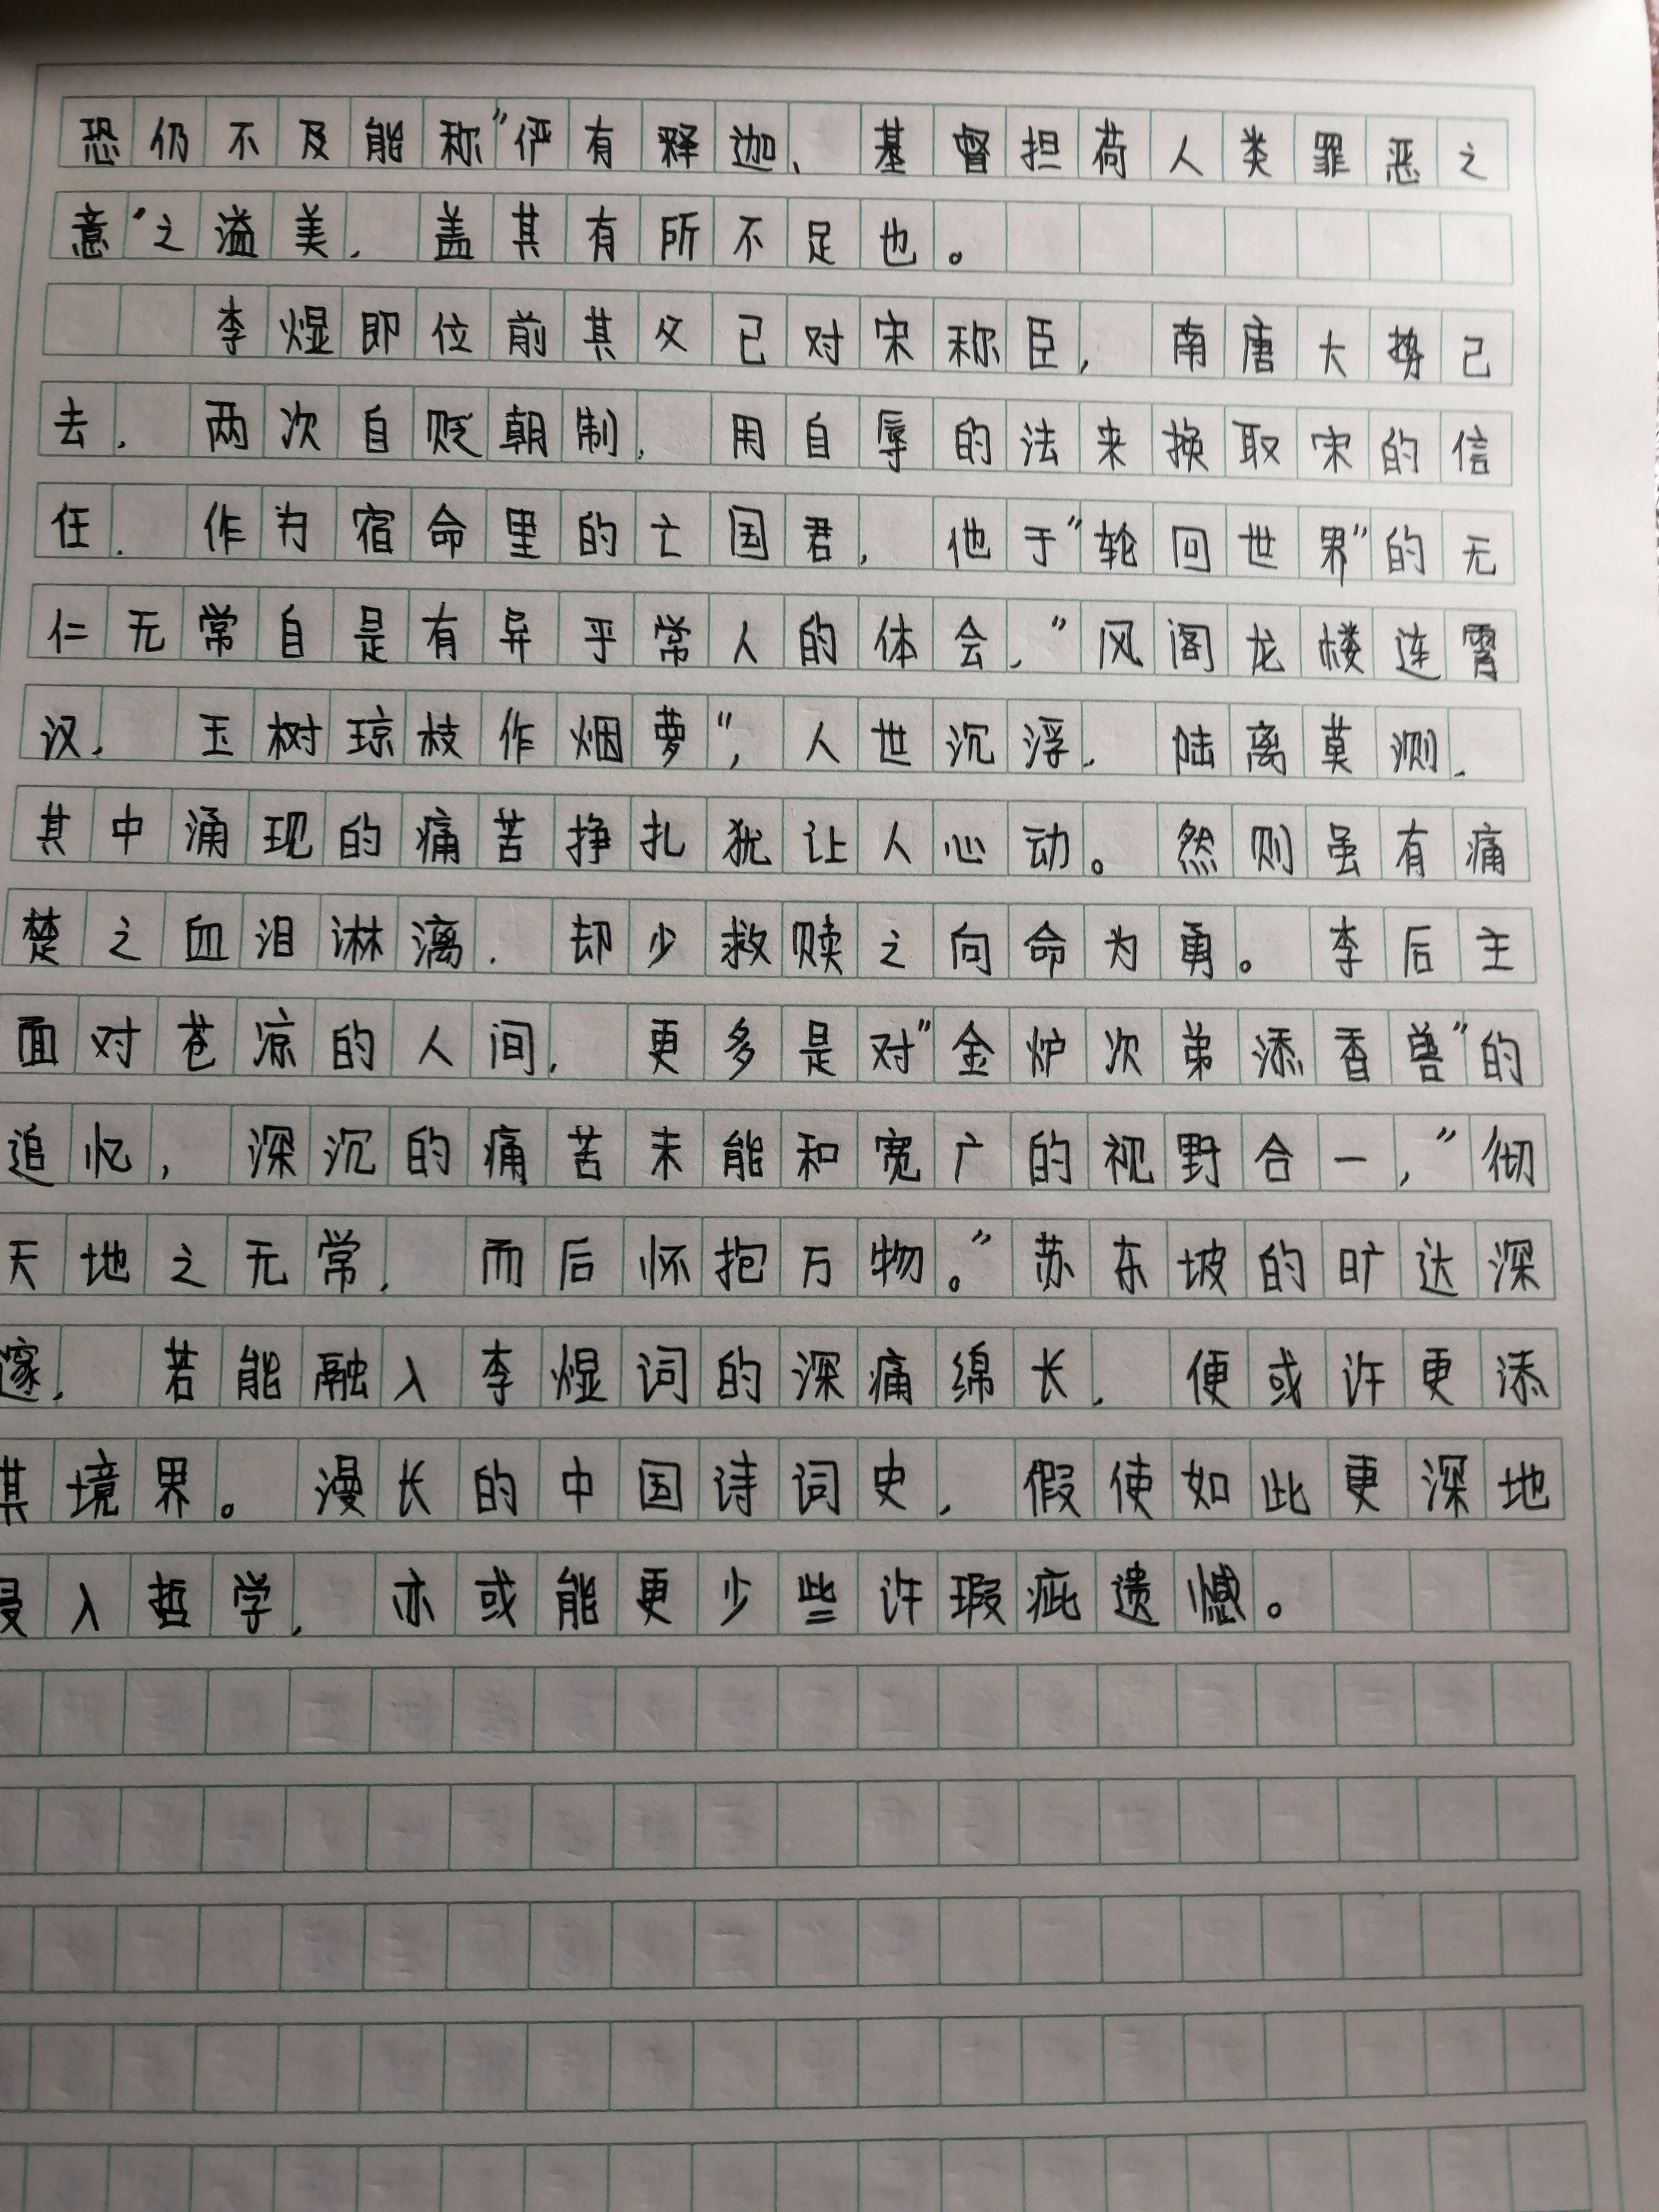 恐仍不及能称“俨有释迦、基督担荷人类罪恶之
意”之溢美，盖其有所不足也。
李煜即位前其父已对宋称臣，南唐大势已
去，两次自贬朝制，用自辱的法来换取宋的信
任．作为宿命里的亡国君，他于“轮回世界”的无
仁无常自是有异乎常人的体会，“风阁龙楼连霄
汉，玉树琼枝作烟萝”，人世沉浮，陆离莫测，
其中涌现的痛苦挣扎犹让人心动。然则虽有痛
楚之血泪淋漓，却少救赎之向命为勇。李后主
面对苍凉的人间，更多是对“金炉次第添香兽”的
追忆，深沉的痛苦未能和宽广的视野合一，“彻
天地之无常，而后怀抱万物。”苏东坡的旷达深
邃，若能融入李煜词的深痛绵长，便或许更添
其境界。漫长的中国诗词史，假使如此更深地
浸入哲学，亦或能更少些许瑕疵遗憾。